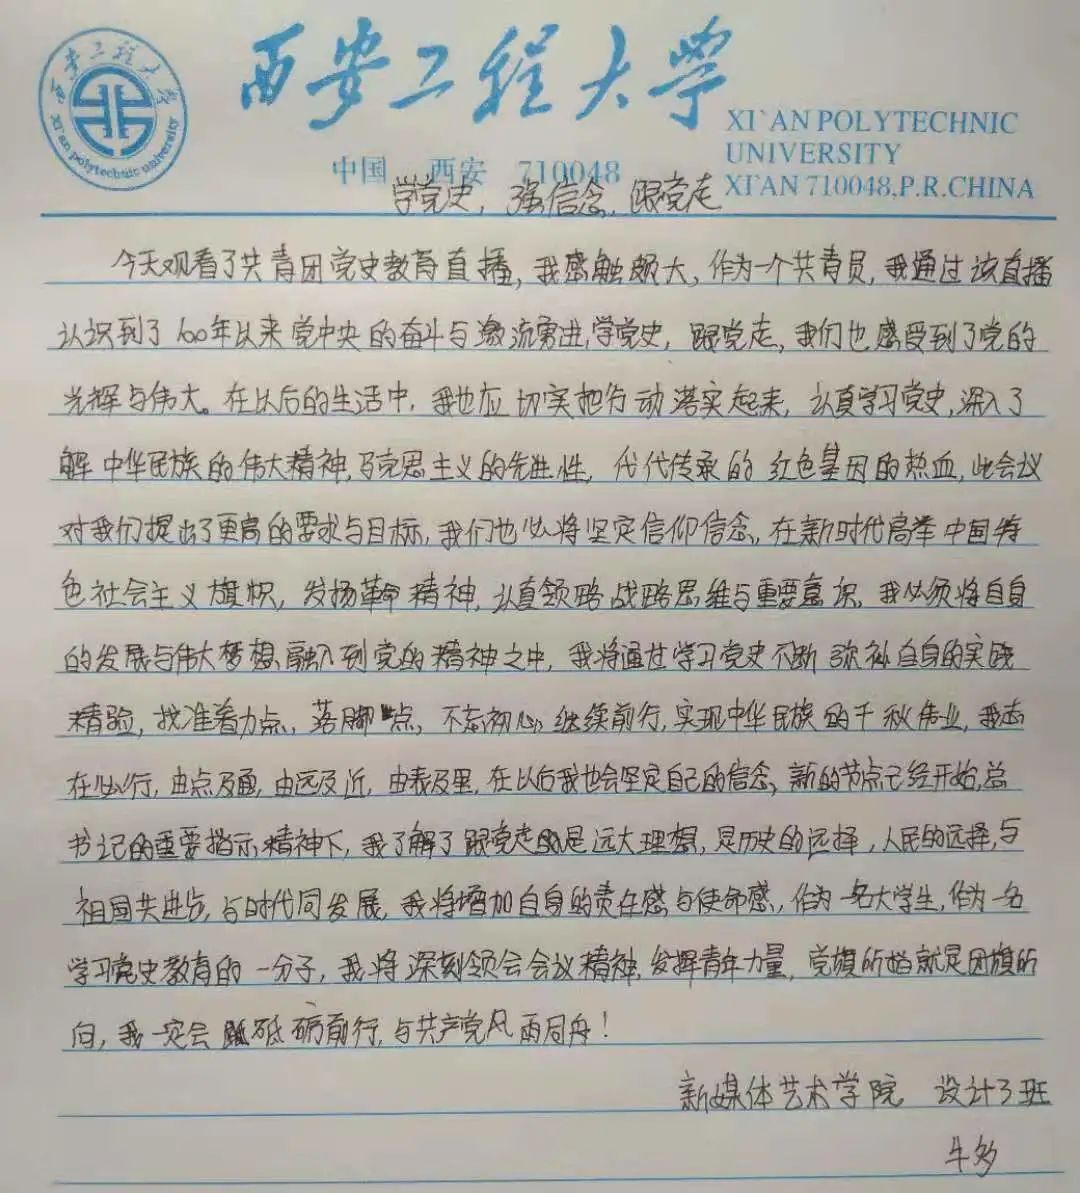 西安工程大学
西安工程大学
XI'an polytechnic university
XI`AN POLYTECHNIC
UNIVERSITY
中国 西安 710048
XI'AN 710048,P.R.CHINA
学党史，强信念，跟党走
今天观看了共青团党史教育直播，我感触颇大，作为一个共青员，我通过该直播
认识到了100年以来党中央的奋斗与激流勇进，学党史，跟党走，我们也感受到了党的
光辉与伟大。在以后的生活中，我也应切实把行动落实起来，认真学习党史，深入了
解中华民族的伟大精神，马克思主义的先进性，代代传承的红色基因的热血，此会议
对我们提出了更高的要求与目标，我们也必将坚定信仰信念，在新时代高举中国特
色社会主义旗帜，发扬革命精神，认真领略战略思维与重要意识，我必须将自身
的发展与伟大梦想融入到党的精神之中，我将通过学习党史不断弥补自身的实践
精验，找准着力点、落脚点，不忘初心，继续前行，实现中华民族的千秋伟业，我志
在必行，由点及面，由远及近，由表及里，在以后我也会坚定自己的信念，新的节点已经开始，总
书记的重要指示精神下，我了解了跟党走是远大理想，是历史的选择，人民的选择，与
祖国共进步，与时代同发展，我将增加自身的责任感与使命感，作为一名大学生，作为一名
学习党史教育的一分子，我将深刻领会会议精神，发挥青年力量，党旗所指就是团旗所
向，我一定会砥砺前行，与共产党风雨同舟！
新媒体艺术学院 设计3班
牛多